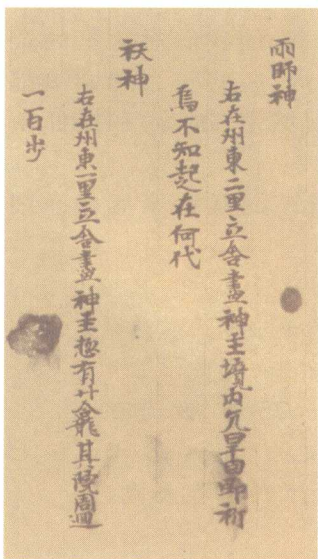 雨師神
右在州東二里立舍畫神主境內亢旱因即祈
焉不知起在何代
祆神
右在州東一里立舍畫神主惣有廿龕其院周迴
一百步